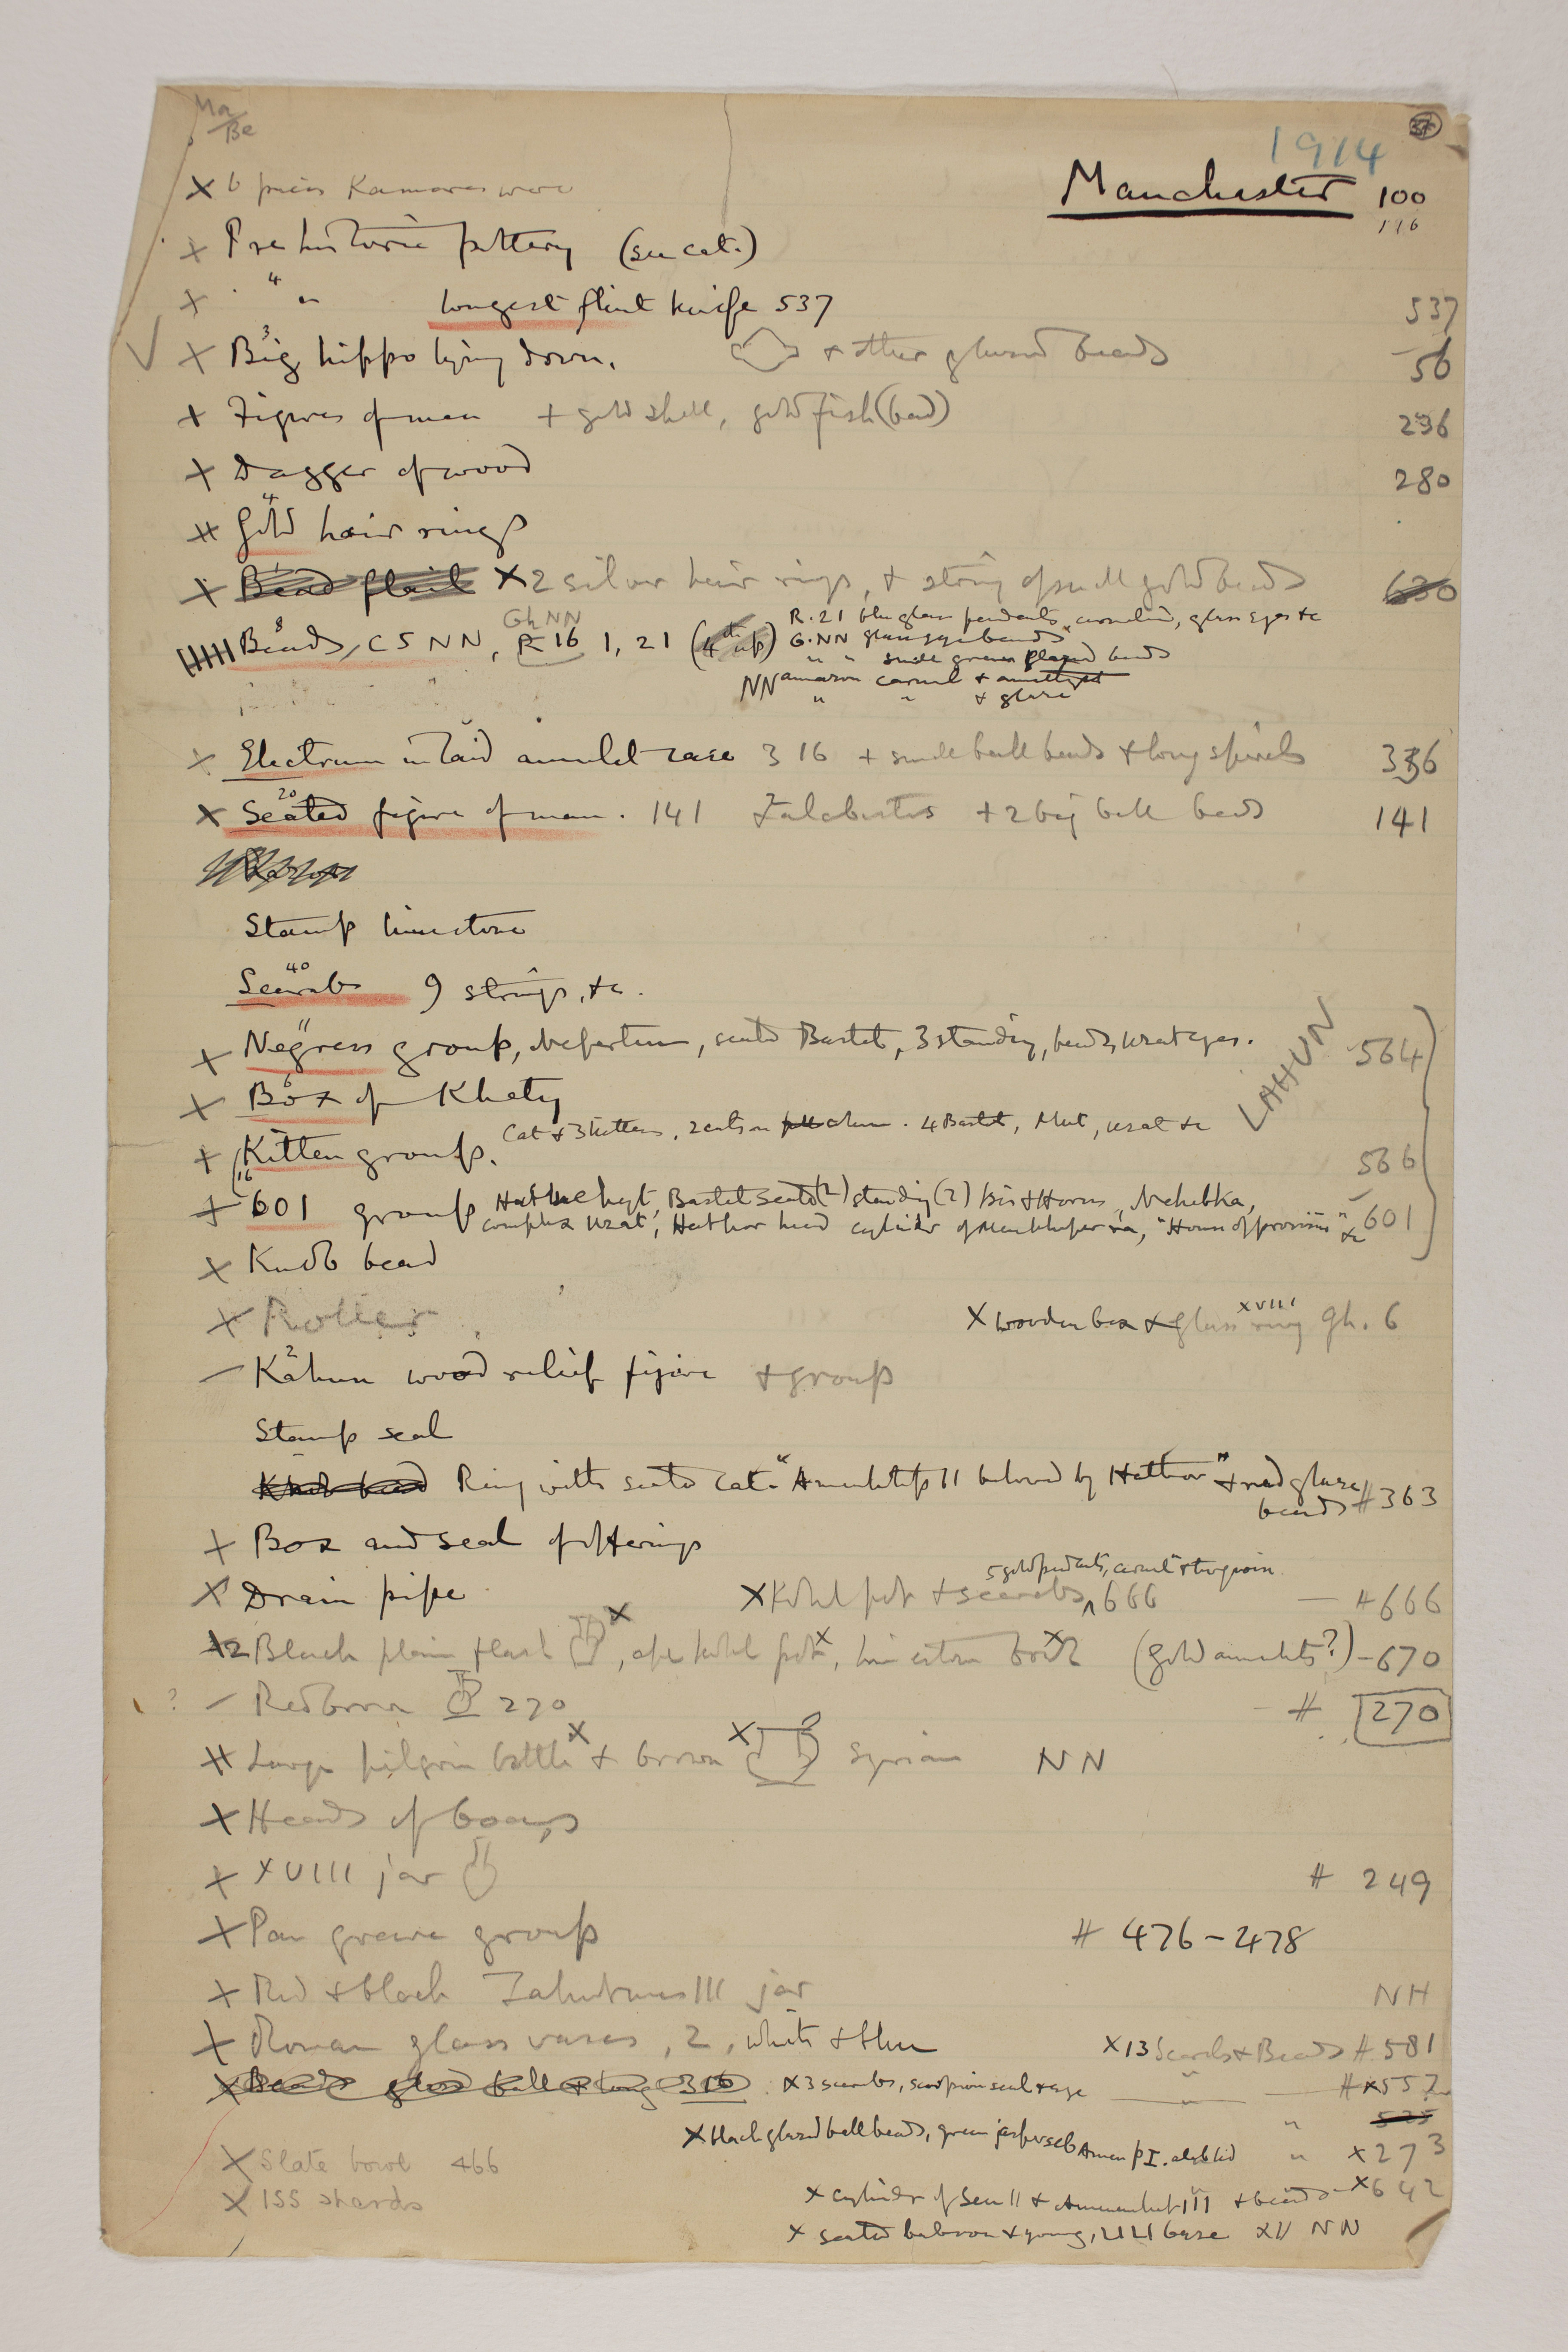 Ma
Be
37
1914
Manchester 100
116
X 6 pieces Kamares ware
X Prehistoric pottery (see cat.)
X " " longest flint knife 537 537
X Big hippo lying down. + other glazed beads 56
3
X Figures of men + gold shell, gold fish (bad) 296
X Dagger of wood 280
4
X Gold hair rings
X Bead flail X 2 silver hair rings, + string of small gold beads 630
8
Beads, CS NN, R 16 1, 21 (4th up) R.21 blu glass pendants, carnelian, glass eyes &c
Gh NN
G.NN glass eye beads
" " small green glazed beads
NN amazon carnel + amethyst
" " + glaze
X Electrum inlaid amulet case 316 + small ball beads + long spirals 336
20
X Seated figure of man. 141 2 alabasters + 2 big ball beads 141
Stamp limestone
40
Scarabs 9 strings, &c.
11
X Negress group, Nefertum, seated Bastet, 3 standing, beads, uzat eyes. 564
LAHUN
6
X Box of Khety
X Kitten group. Cat & 3 kittens, 2 cats on column. 4 Bastet, Mut, uzat &c 566
16
X 601 group Bastet seated (2) standing (2) Isis & Horus, Nehebka,
complex uzat, Hathor head cylinder of Menkheperra, "House of provisions" &c 601
X Knob bead
X Roller X wooden box + glass ring gh. 6
XVIII
2
— Kahun wood relief figure + group
Stamp seal
Knob bead Ring with seated cat. "Amenhetep II beloved by Hathor" + red glaze
beads # 363
X Box and seal of offerings
5 gold pendants, carnel + turquoise
X Drain pipe X Kohl pot + scarabs 666 — # 666
X2 Black plain flask, ape kohl pot, limestone box (gold amulets?) — 670
? — Red brown 270 — # 270
X Large pilgrim bottle + brown Syrian NN
X Heads of boars
X XVIII jar # 249
X Pan grave group # 476-478
X Red + black Tahutmes III jar NH
X Roman glass vases, 2, white + blue X 13 Scarabs + Beads # 581
X Beads glass ball + long 316 X 3 scarabs, scorpion seal + eye " # X 557
" 525
X black glazed ball beads, green jasper scb Amen p I. alab lid " X 273
X Slate bowl 466
X cylinder of Sen II + Amenemhat III + beads " X 642
X ISS shards
X seated baboon + young, base XII NN